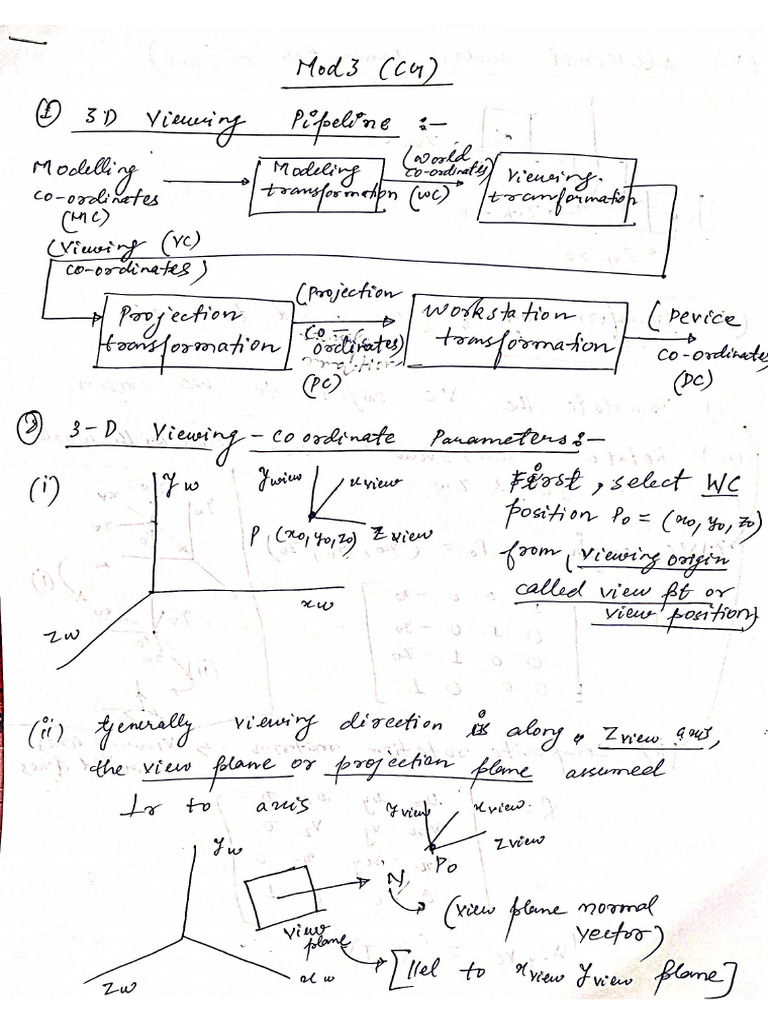 Mod3 (CG)
① 3D Viewing Pipeline :-
Modelling co-ordinates (MC)
Modeling transformation
(World co-ordinates) (WC)
Viewing transformation
(Viewing (VC) co-ordinates)
Projection transformation
(Projection co-ordinates) (PC)
Workstation transformation
(Device co-ordinates (DC)
② 3-D Viewing-coordinate Parameters:-
(i)
Yw
xw
Zw
Yview
xview
Zview
P (x0, y0, z0)
First, select WC
position P0 = (x0, y0, z0)
from (viewing origin
called view pt or
view position)
(ii) Generally viewing direction is along Zview axis,
the view plane or projection plane assumed
⊥r to axis
Yview
xview.
Zview
P0
Yw
xw
Zw
View plane
N
(view plane normal
vector)
[llel to xview Yview plane]